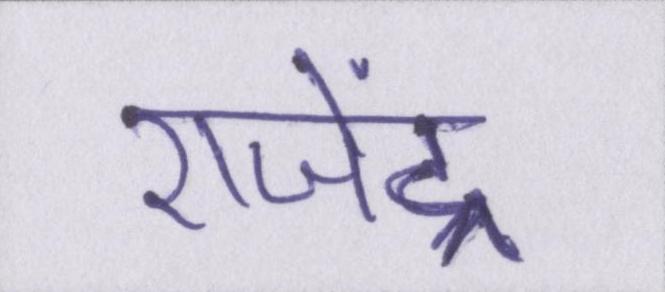 राजेंद्र